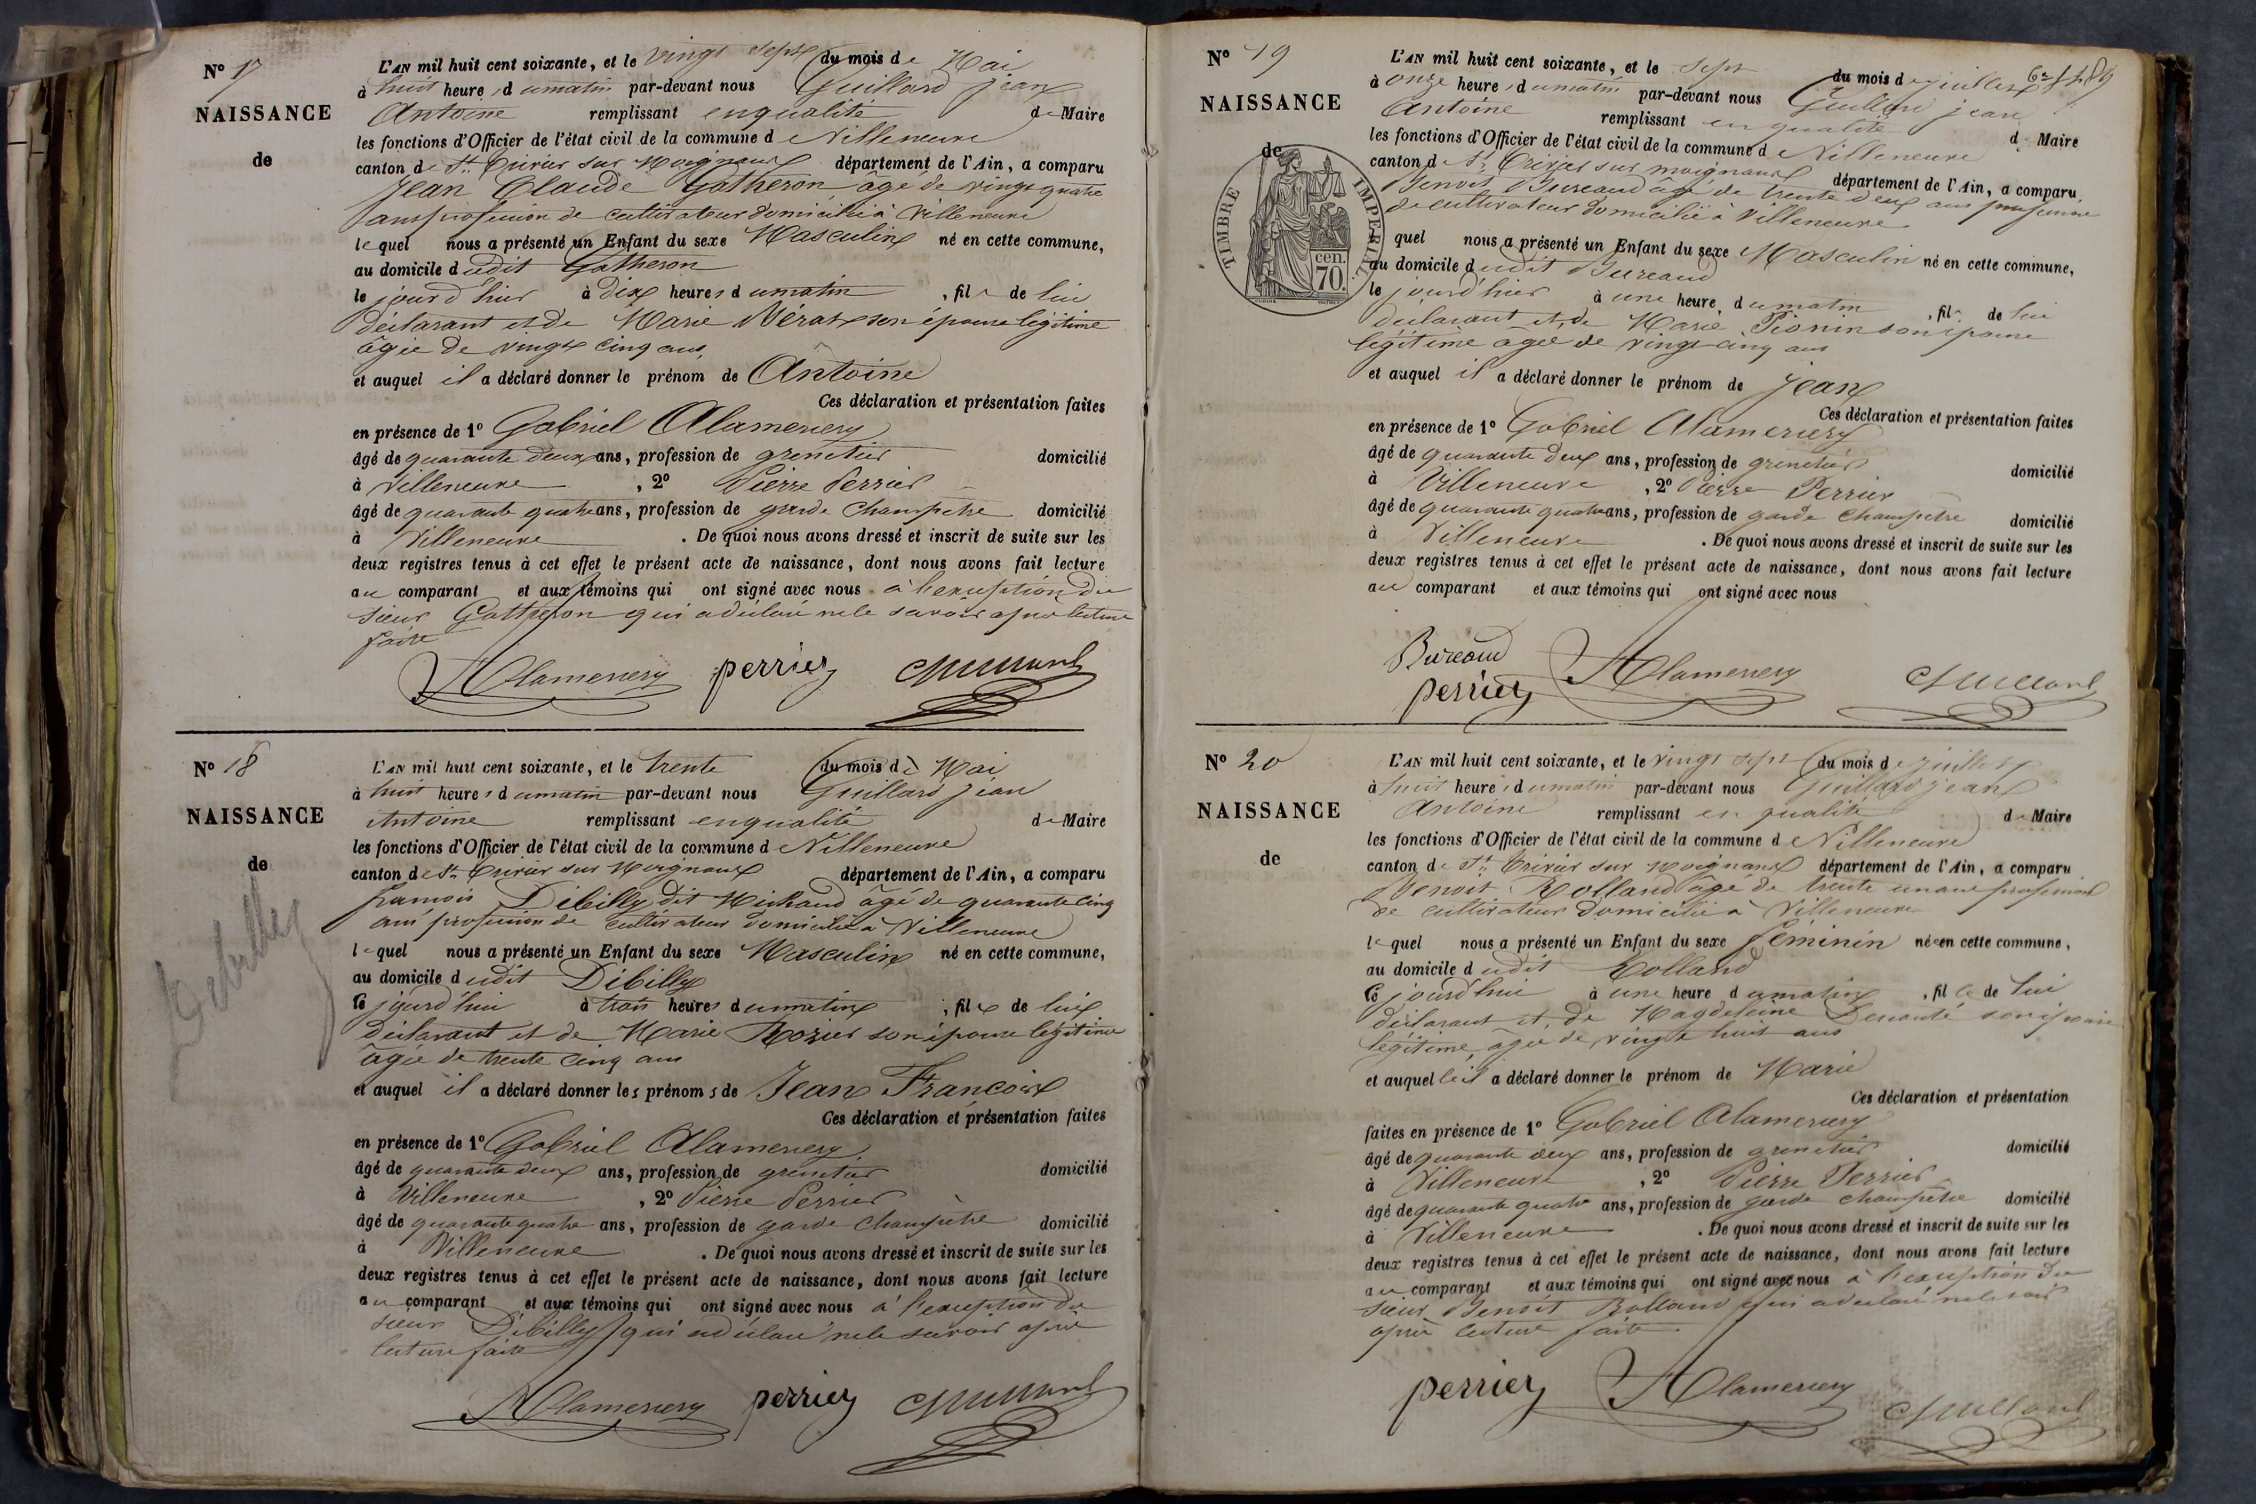 N° 17
NAISSANCE
de
L'AN mil huit cent soixante, et le vingt sept du mois de Mai
à huit heures du matin par-devant nous Guillard jean
Antoine remplissant en qualité de Maire
les fonctions d'Officier de l'état civil de la commune de Villeneuve
canton de St Trivier sur Moignans département de l'Ain, a comparu
Jean Claude Gatheron âgé de vingt quatre
ans profession de cultivateur domicilié à Villeneuve
lequel nous a présenté un Enfant du sexe Masculin né en cette commune,
au domicile dudit Gatheron
le jour d'hier à dix heures du matin, fils de lui
déclarant et de Marie Nérat son épouse légitime
âgée de vingt cinq ans
et auquel il a déclaré donner le prénom de Antoine
Ces déclaration et présentation faites
en présence de 1° Gabriel Alamercery
âgé de quarante deux ans, profession de grenetier domicilié
à Villeneuve, 2° Pierre Perrier
âgé de quarante quatre ans, profession de garde Champetre domicilié
à Villeneuve. De quoi nous avons dressé et inscrit de suite sur les
deux registres tenus à cet effet le présent acte de naissance, dont nous avons fait lecture
au comparant et aux témoins qui ont signé avec nous à l'exception du
sieur Gatheron qui a déclaré ne le savoir après lecture
faite
Alamercery perrier Guillard
N° 18
NAISSANCE
de
Debilly
L'AN mil huit cent soixante, et le trente du mois de Mai
à huit heures du matin par-devant nous Guillard jean
Antoine remplissant en qualité de Maire
les fonctions d'Officier de l'état civil de la commune de Villeneuve
canton de St Trivier sur Moignans département de l'Ain, a comparu
françois Débilly dit Michaud âgé de quarante cinq
ans profession de cultivateur domicilié à Villeneuve
lequel nous a présenté un Enfant du sexe Masculin né en cette commune,
au domicile dudit Débilly
le jourd'hui à trois heures du matin, fils de lui
déclarant et de Marie Rozier son épouse légitime
âgée de trente cinq ans
et auquel il a déclaré donner les prénoms de Jean François
Ces déclaration et présentation faites
en présence de 1° Gabriel Alamercery
âgé de quarante deux ans, profession de grenetier domicilié
à Villeneuve, 2° Pierre Perrier
âgé de quarante quatre ans, profession de garde Champêtre domicilié
à Villeneuve. De quoi nous avons dressé et inscrit de suite sur les
deux registres tenus à cet effet le présent acte de naissance, dont nous avons fait lecture
au comparant et aux témoins qui ont signé avec nous à l'exception du
sieur Débilly qui a déclaré ne le savoir après
lecture faite
Alamercery perrier Guillard
N° 19
NAISSANCE
de
TIMBRE IMPERIAL
70 cen.
L'AN mil huit cent soixante, et le sept du mois de juillet
à onze heures du matin par-devant nous Guillard jean
Antoine remplissant en qualité de Maire
les fonctions d'Officier de l'état civil de la commune de Villeneuve
canton de St Trivier sur moignans département de l'Ain, a comparu
Benoit Bureaud âgé de trente deux ans profession
de cultivateur domicilié à Villeneuve
quel nous a présenté un Enfant du sexe Masculin né en cette commune,
au domicile dudit Bureaud
le jourd'hier à une heure du matin, fils de lui
déclarant et de Marie Pionin son épouse
légitime âgée de vingt cinq ans
et auquel il a déclaré donner le prénom de Jean
Ces déclaration et présentation faites
en présence de 1° Gabriel Alamercery
âgé de quarante deux ans, profession de grenetier domicilié
à Villeneuve, 2° Pierre Perrier
âgé de quarante quatre ans, profession de garde Champêtre domicilié
à Villeneuve. De quoi nous avons dressé et inscrit de suite sur les
deux registres tenus à cet effet le présent acte de naissance, dont nous avons fait lecture
au comparant et aux témoins qui ont signé avec nous
Bureaud Alamercery Guillard
perrier
N° 20
NAISSANCE
de
L'AN mil huit cent soixante, et le vingt sept du mois de juillet
à huit heures du matin par-devant nous Guillard jean
Antoine remplissant en qualité de Maire
les fonctions d'Officier de l'état civil de la commune de Villeneuve
canton de St Trivier sur Moignans département de l'Ain, a comparu
Benoit Rolland âgé de trente un ans profession
de cultivateur domicilié à Villeneuve
lequel nous a présenté un Enfant du sexe féminin née en cette commune,
au domicile dudit Rolland
le jourd'hui à une heure du matin, fille de lui
déclarant et de Magdeleine son épouse
légitime, âgée de vingt huit ans
et auquel il a déclaré donner le prénom de Marie
Ces déclaration et présentation
faites en présence de 1° Gabriel Alamercery
âgé de quarante deux ans, profession de grenetier domicilié
à Villeneuve, 2° Pierre Perrier
âgé de quarante quatre ans, profession de garde champêtre domicilié
à Villeneuve. De quoi nous avons dressé et inscrit de suite sur les
deux registres tenus à cet effet le présent acte de naissance, dont nous avons fait lecture
au comparant et aux témoins qui ont signé avec nous à l'exception du
sieur Benoit Rolland qui a déclaré ne le savoir
après lecture faite
perrier Alamercery Guillard